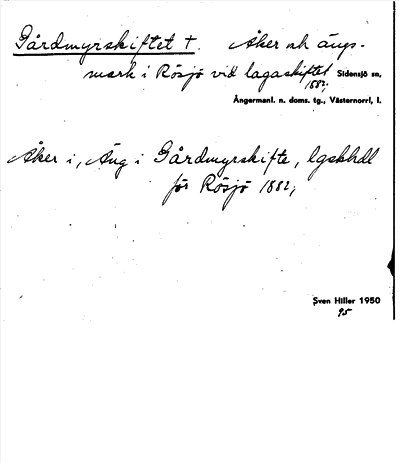 Gårdmyrskiftet †. Åker och ängs-
mark i Rösjö vid lagaskiftet Sidensjö sn,
1882.
Ångermanl. n. doms. tg., Västernorrl, l.
Åker i, Äng i Gårdmyrskifte, lgskhdl
för Rösjö 1882,
Sven Hiller 1950
95